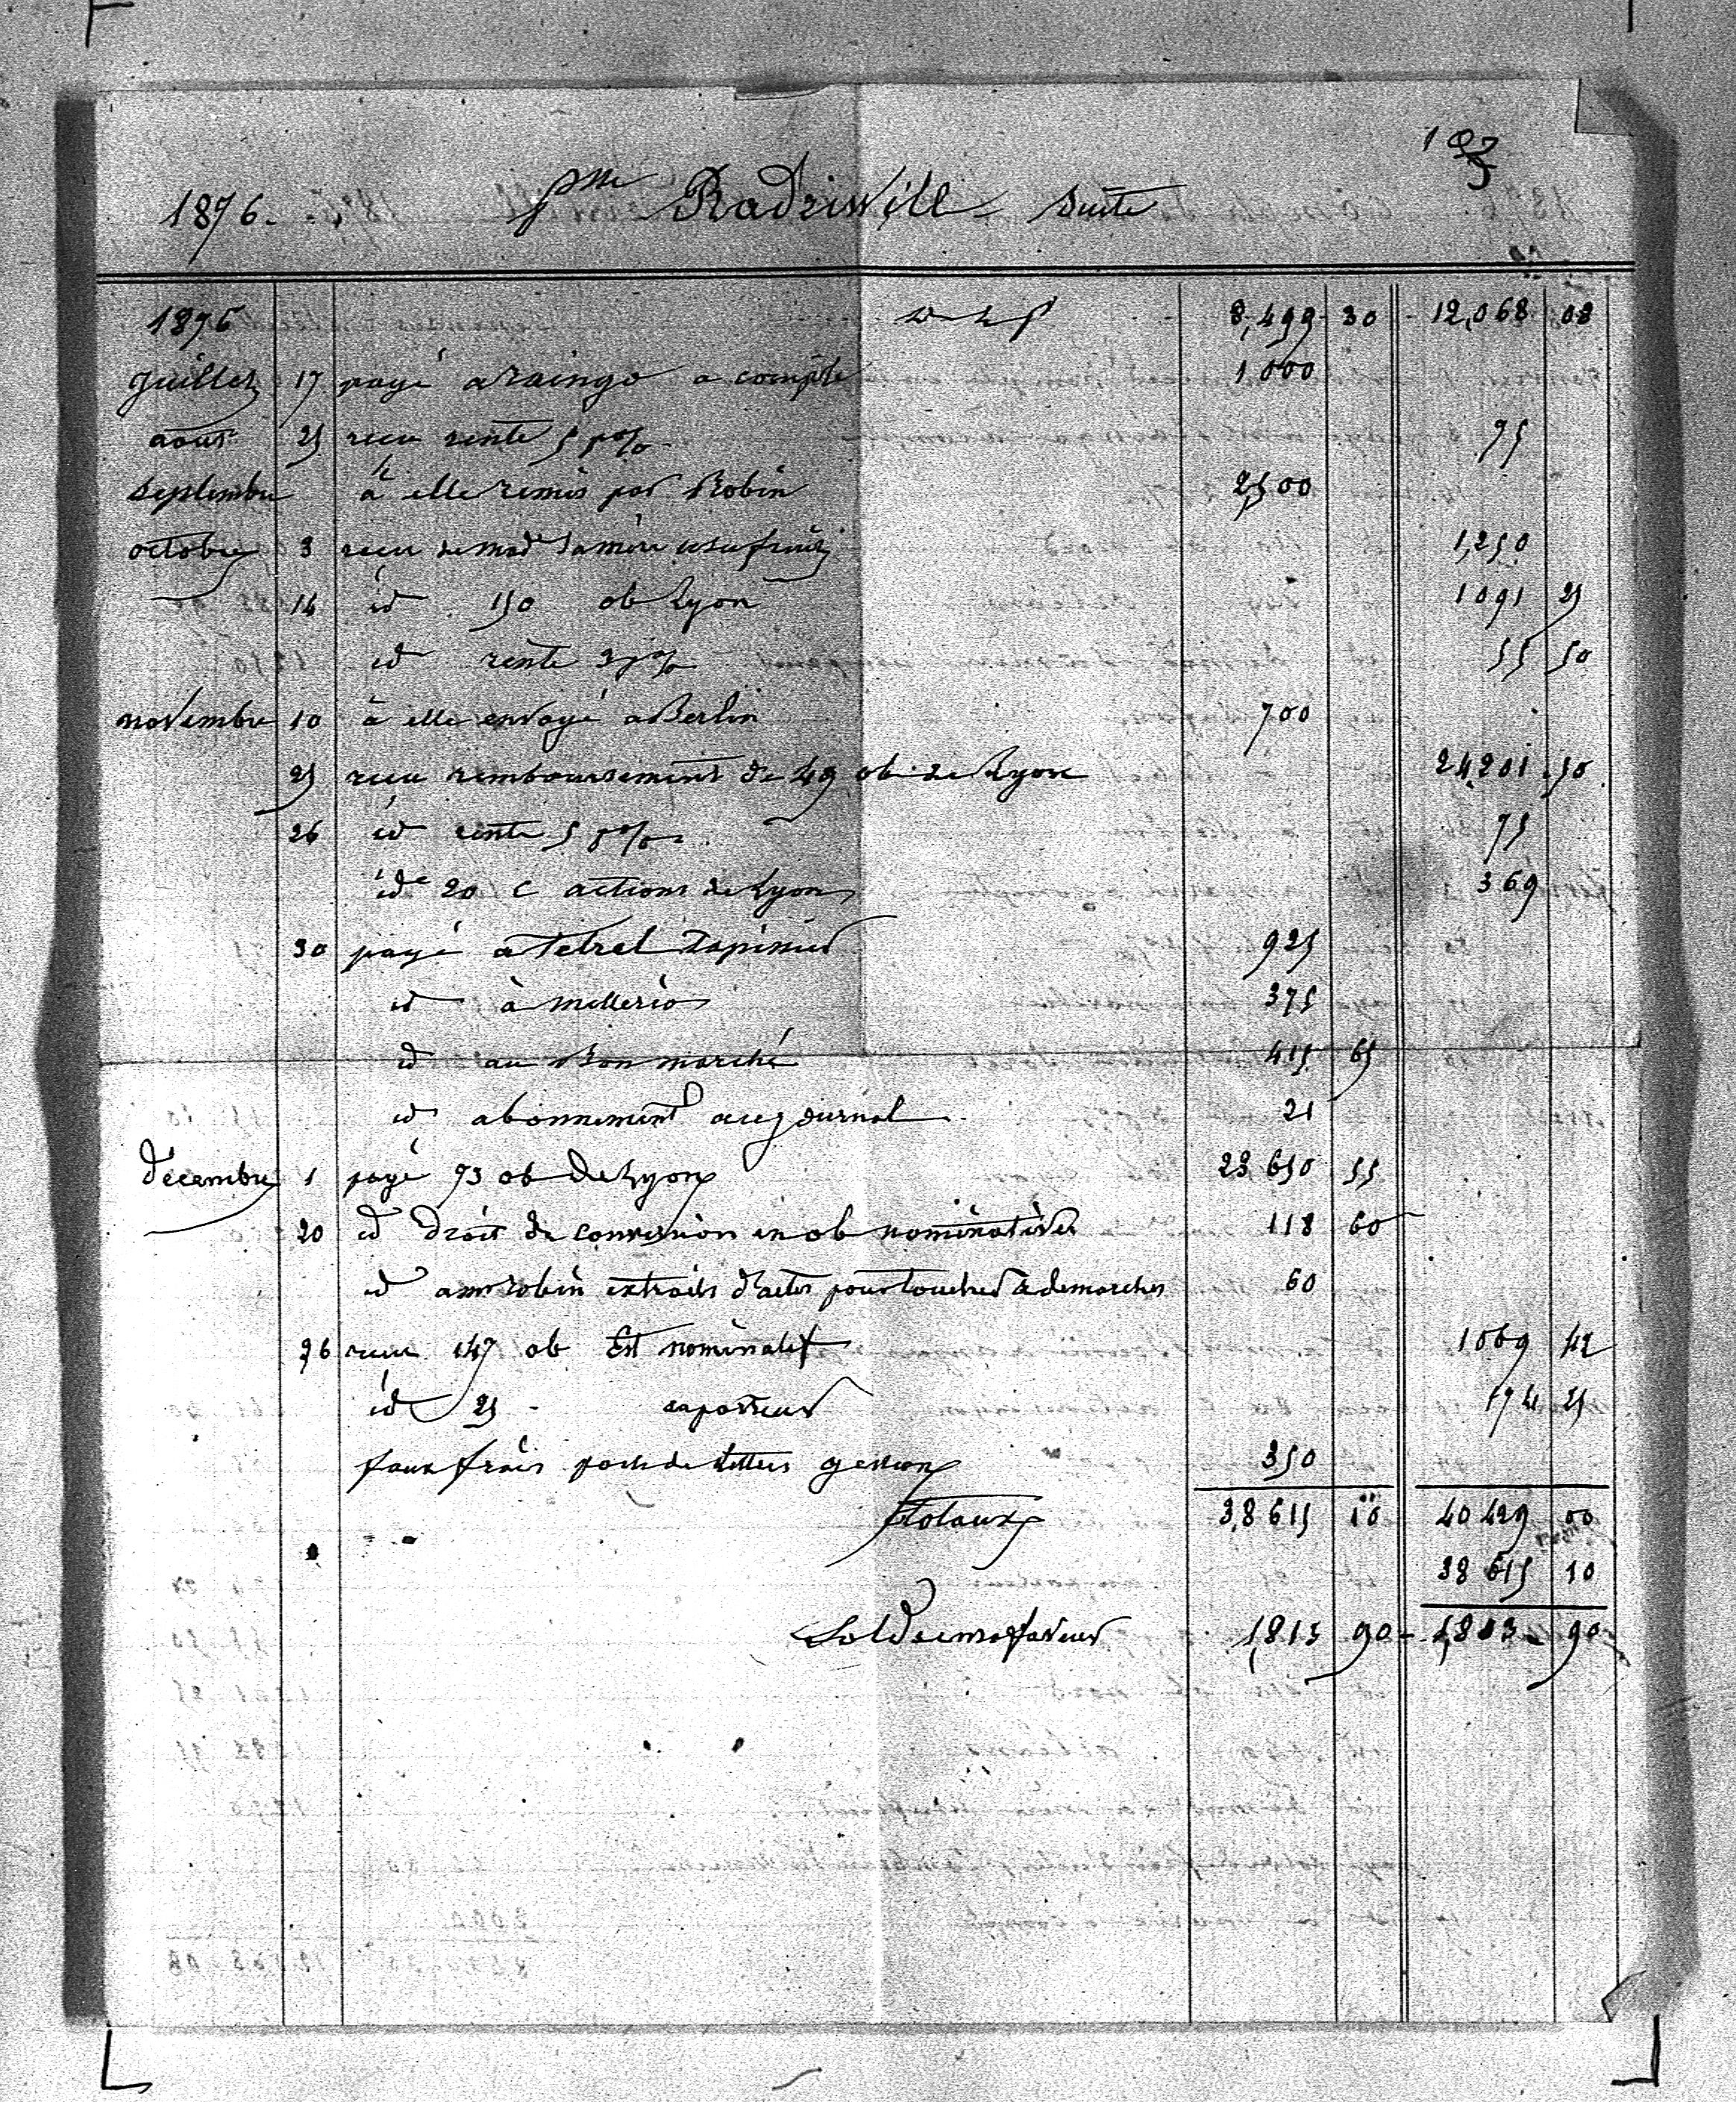 193
1876. Psse Radziwill suite
1876 8,499 30 12,068 08
juillet 17 payé a raingo a compte 1000
aout 25 recu rente 5 p% 75
septembre à elle remis par Robin 2500
octobre 3 recu de made sa mère usufruit 1,250
14 id 150 ob Lyon 1091 25
id rente 3 p% 55 50
novembre 10 à elle envoyé a Berlin 700
25 recu remboursement de 49 ob de Lyon 24,201 50
26 id rente 5 p% 75
id 20 c actions de Lyon 369
30 payé a Tetrel Tapissier 925
id à mellerio 375
id au Bon marché 415 65
id abonnement au journal 21
décembre 1 payé 73 ob de Lyon 23 650 55
20 id droit de conversion en ob nominatives 118 60
id a mr robin extraits d'actes pour toucher & demarches 60
26 recu 147 ob Est nominatif 1069 42
id 25 - au porteur 174 25
faux frais ports de lettres gestion 350
Totaux 38 615 10 40 429 00
38 615 10
Solde en sa faveur 1,813 90 - 1,813 90